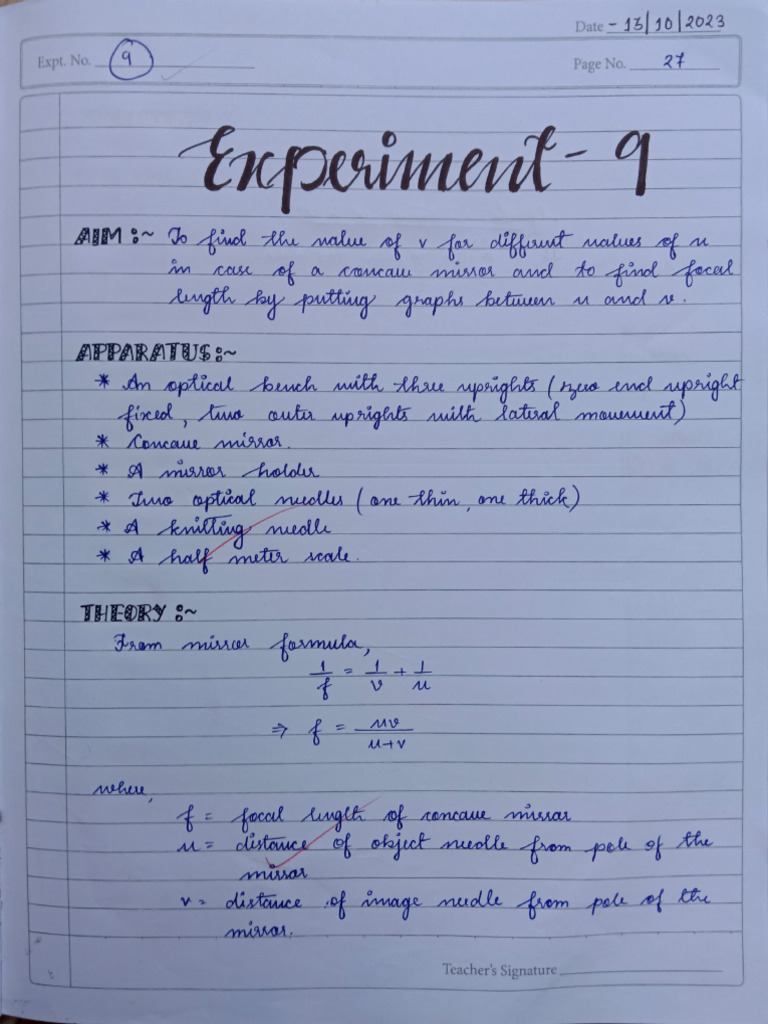 Date - 13/10/2023
Expt. No. 9
Page No. 27
Experiment - 9
AIM :~ To find the value of v for different values of u
in case of a concave mirror and to find focal
length by putting graphs between u and v.
APPARATUS :~
* An optical bench with three uprights (zero end upright
fixed, two outer uprights with lateral movement)
* Concave mirror.
* A mirror holder
* Two optical needles (one thin, one thick)
* A knitting needle
* A half meter scale.
THEORY :~
From mirror formula,
1/f = 1/v + 1/u
⇒ f = uv/u+v
where,
f = focal length of concave mirror
u = distance of object needle from pole of the
mirror
v = distance of image needle from pole of the
mirror.
Teacher's Signature